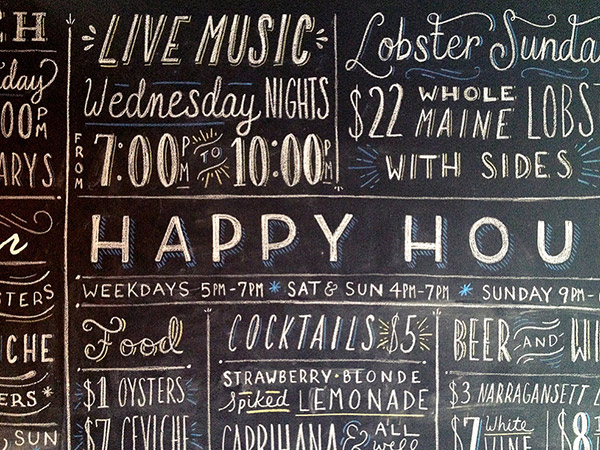 H
day
00PM
ARYS
LIVE MUSIC
Wednesday NIGHTS
FROM 7:00PM TO 10:00PM
Lobster Sunda
$22 WHOLE MAINE LOBS
WITH SIDES
HAPPY HOU
WEEKDAYS 5PM-7PM * SAT & SUN 4PM-7PM * SUNDAY 9PM-
STERS
ICHE
ERS*
, SUN
Food
$1 OYSTERS
$7 CEVICHE
COCKTAILS $5
STRAWBERRY·BLONDE
Spiked LEMONADE
CAPRIHANA & A'LL Well
BEER AND WI
$3 NARRAGANSETT L
$7 White WINE $8